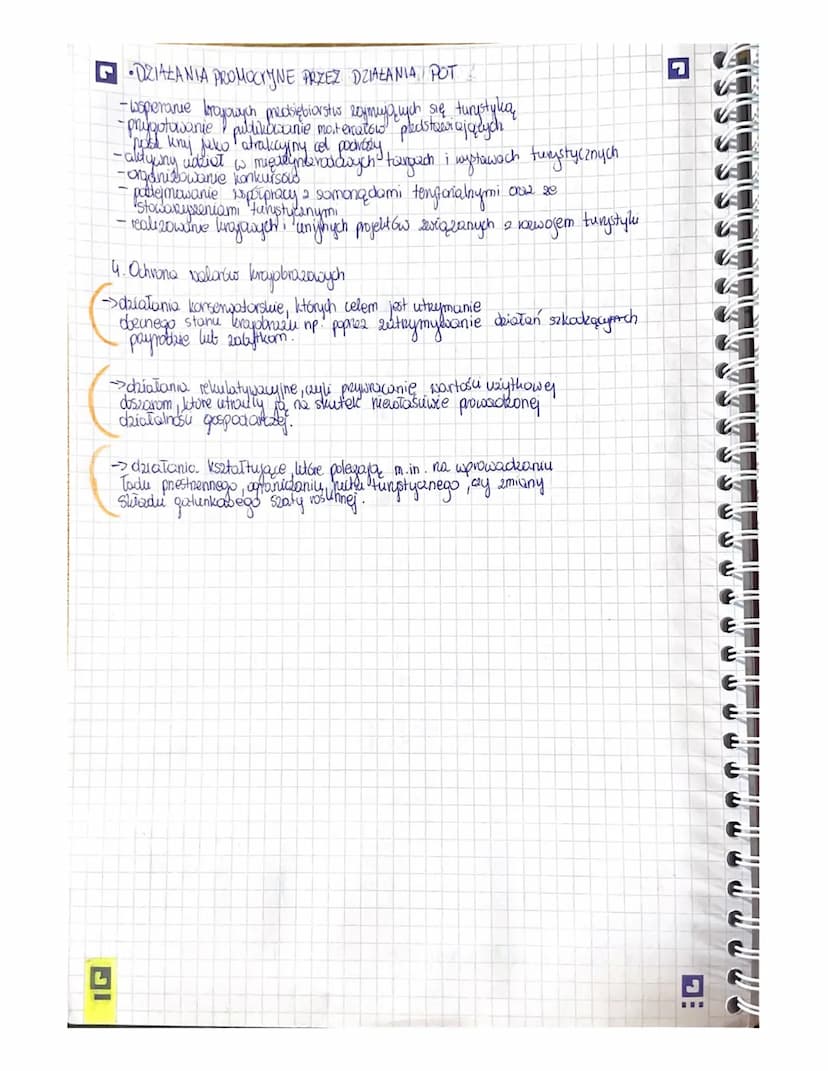 • DZIAŁANIA PROMOCYJNE PRZEZ DZIAŁANIA POT
- wspieranie krajowych przedsiębiorstw zajmujących się turystyką
- przygotowanie i publikowanie materiałów przedstawiających
nasz kraj jako atrakcyjny cel podróży
- aktywny udział w międzynarodowych targach i wystawach turystycznych
- organizowanie konkursów
- podejmowanie współpracy z samorządami terytorialnymi oraz ze
stowarzyszeniami turystycznymi
- realizowanie krajowych i unijnych projektów związanych z rozwojem turystyki
4. Ochrona walorów krajobrazowych
→ działania konserwatorskie, których celem jest utrzymanie
obecnego stanu krajobrazu np. poprzez zatrzymywanie działań szkodzących
przyrodzie lub zabytkom.
→ działania rekulatywacyjne, czyli przywracanie wartości użytkowej
obszarom, które utraciły ją na skutek niewłaściwie prowadzonej
działalności gospodarczej.
→ działania kształtujące, które polegają m.in. na wprowadzaniu
ładu przestrzennego, ograniczaniu ruchu turystycznego, czy zmiany
składu gatunkowego szaty roślinnej.